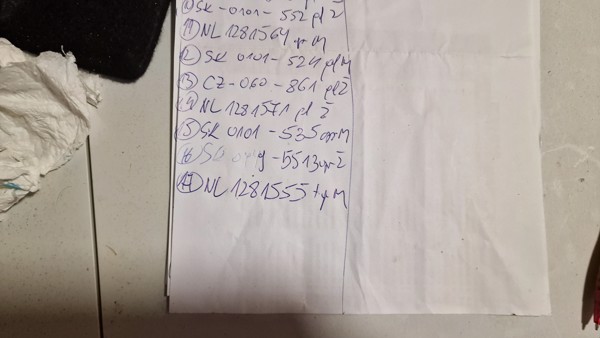 SK-0101-552 pl Ž
11 NL 1281564 gr M
12 SK 0101-524 pl M
13 CZ-060-861 pl Ž
14 NL 1281571 pl Ž
15 SK 0101-535 gr M
16 -5513 gr Ž
17 NL 1281555 M